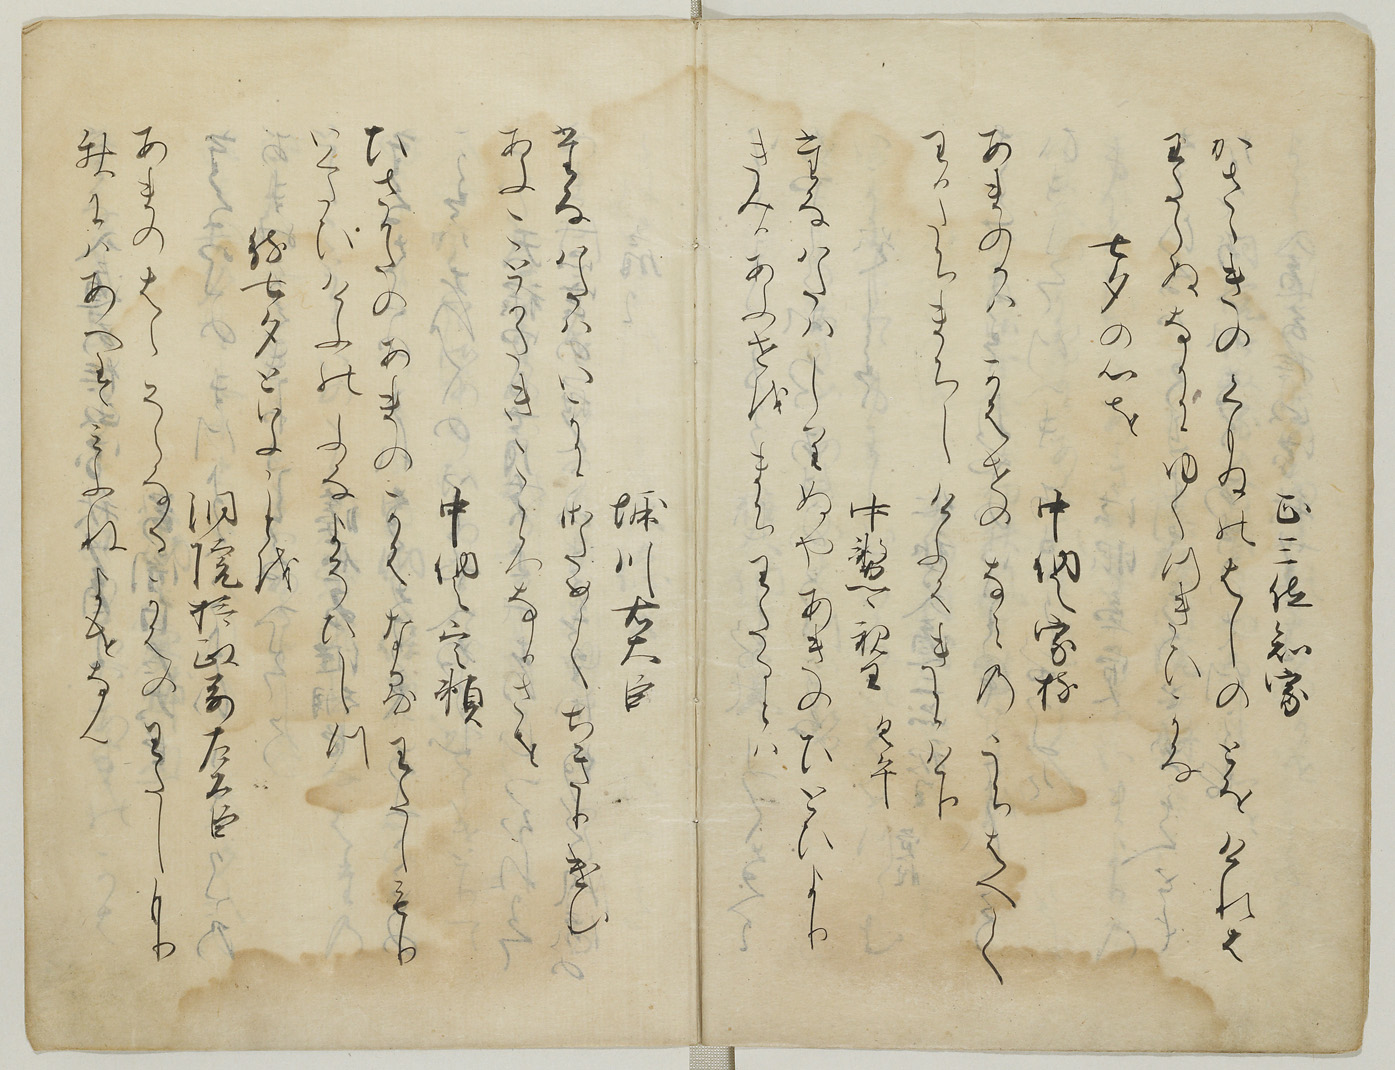 正三位知家
かさゝきのくもゐのはしのとをけれは
わたらぬなかにゆく月ひかな
七夕の心を
中納言家持
あまのかはかはせのなみのうちはへて
わかたちまちしけふはきにけり
中務卿親王 具平
たなはたはしりぬやあきのひとひより
きみかあふせをまちわたるとは
堀川右大臣
たなはたはいかにさためてちきりけむ
あふことかたきこゝろなかさを
中納言定頼
ひさかたのあまのかはなみわたしもり
けふのふなよそひしつ
七夕といふことを
洞院摂政前左大臣
あまのはらそらなるかはのわたし舟
秋にはあへすみふねよせなん